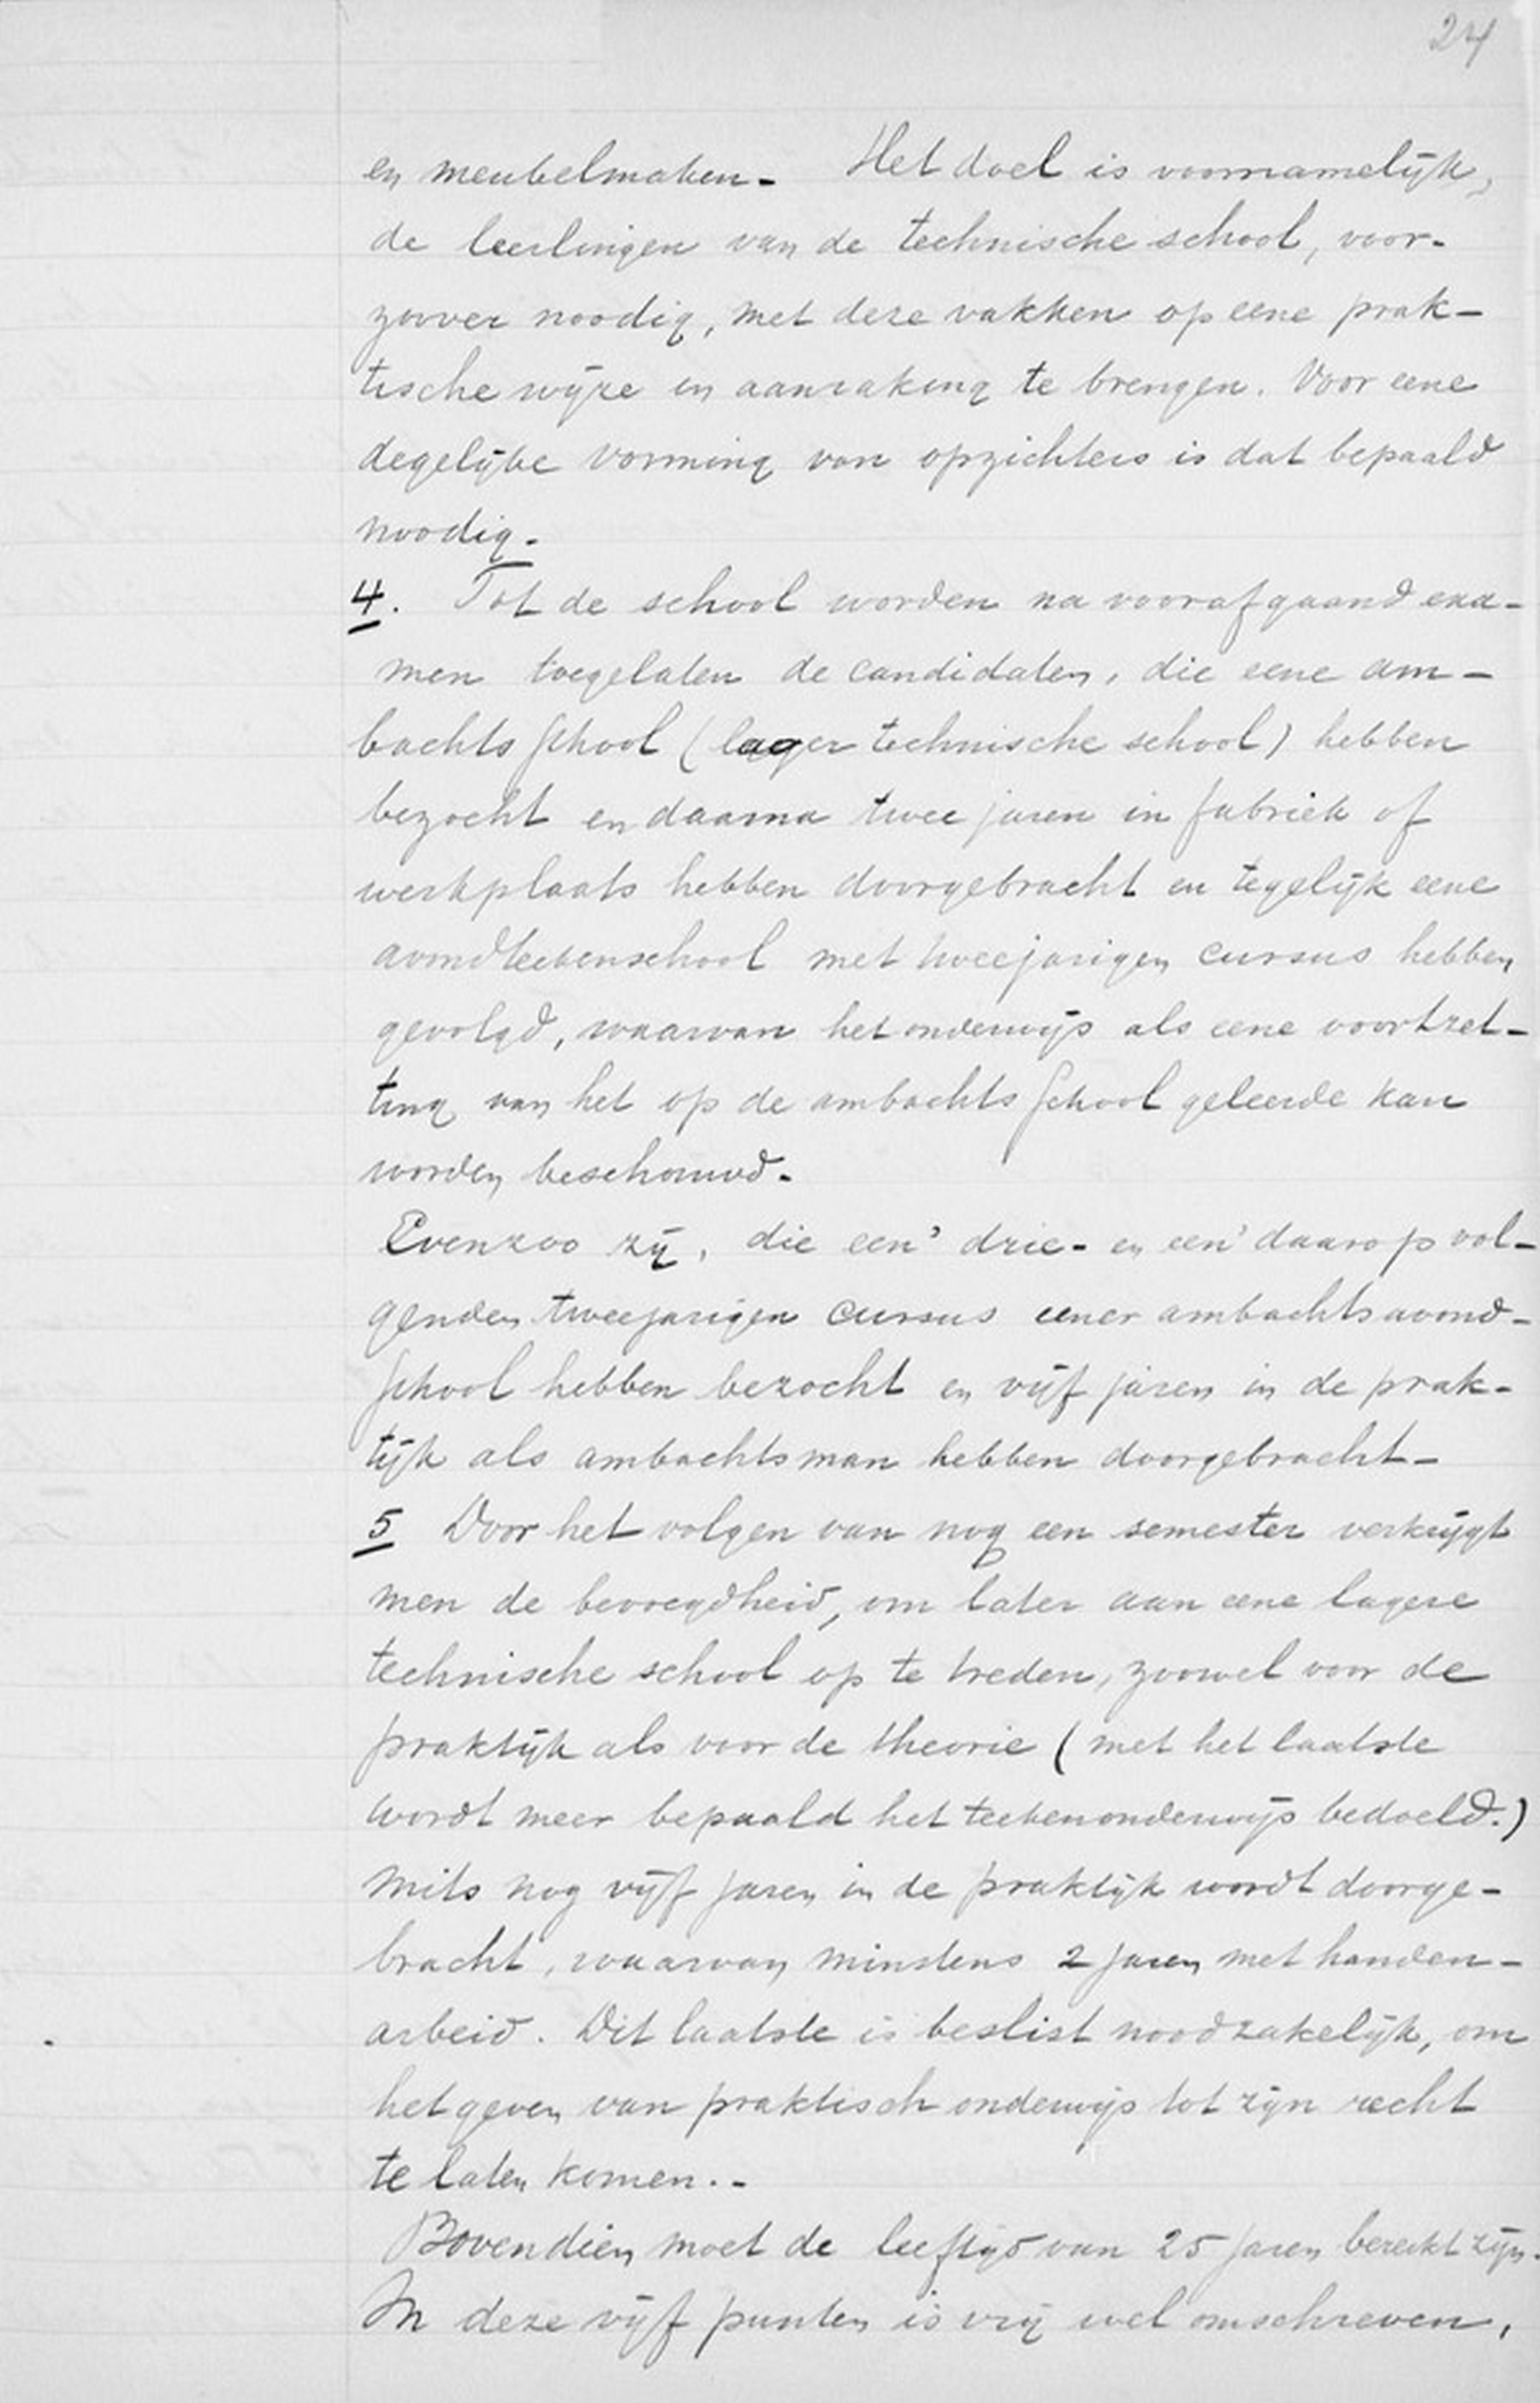 24
en meubelmaken. Het doel is voornamelijk,
de leerlingen van de technische school, voor-
zoover noodig, met deze vakken op eene prak-
tische wijze in aanraking te brengen. Voor eene
degelijke vorming van opzichters is dat bepaald
noodig.
4. Tot de school worden na voorafgaand exa-
men toegelaten de candidaten, die eene am-
bachtsschool (lager technische school) hebben
bezocht en daarna twee jaren in fabriek of
werkplaats hebben doorgebracht en tegelijk eene
avondteekenschool met tweejarigen cursus hebben
gevolgd, waarvan het onderwijs als eene voortzet-
ting van het op de ambachtsschool geleerde kan
worden beschouwd.
Evenzoo zij, die een' drie- en een' daarop vol-
genden tweejarigen cursus eener ambachtsavond-
school hebben bezocht en vijf jaren in de prak-
tijk als ambachtsman hebben doorgebracht-
5 Door het volgen van nog een semester verkrijgt
men de bevoegdheid, om later aan eene lagere
technische school op te treden, zoowel voor de
praktijk als voor de theorie (met het laatste
wordt meer bepaald het teekenonderwijs bedoeld.)
mits nog vijf jaren in de praktijk wordt doorge-
bracht, waarvan minstens 2 jaren met handen-
arbeid. Dit laatste is beslist noodzakelijk, om
het geven van praktisch onderwijs tot zijn recht
te laten komen.-
Bovendien moet de leeftijd van 25 jaren bereikt zijn.
In deze vijf punten is vrij wel omschreven,